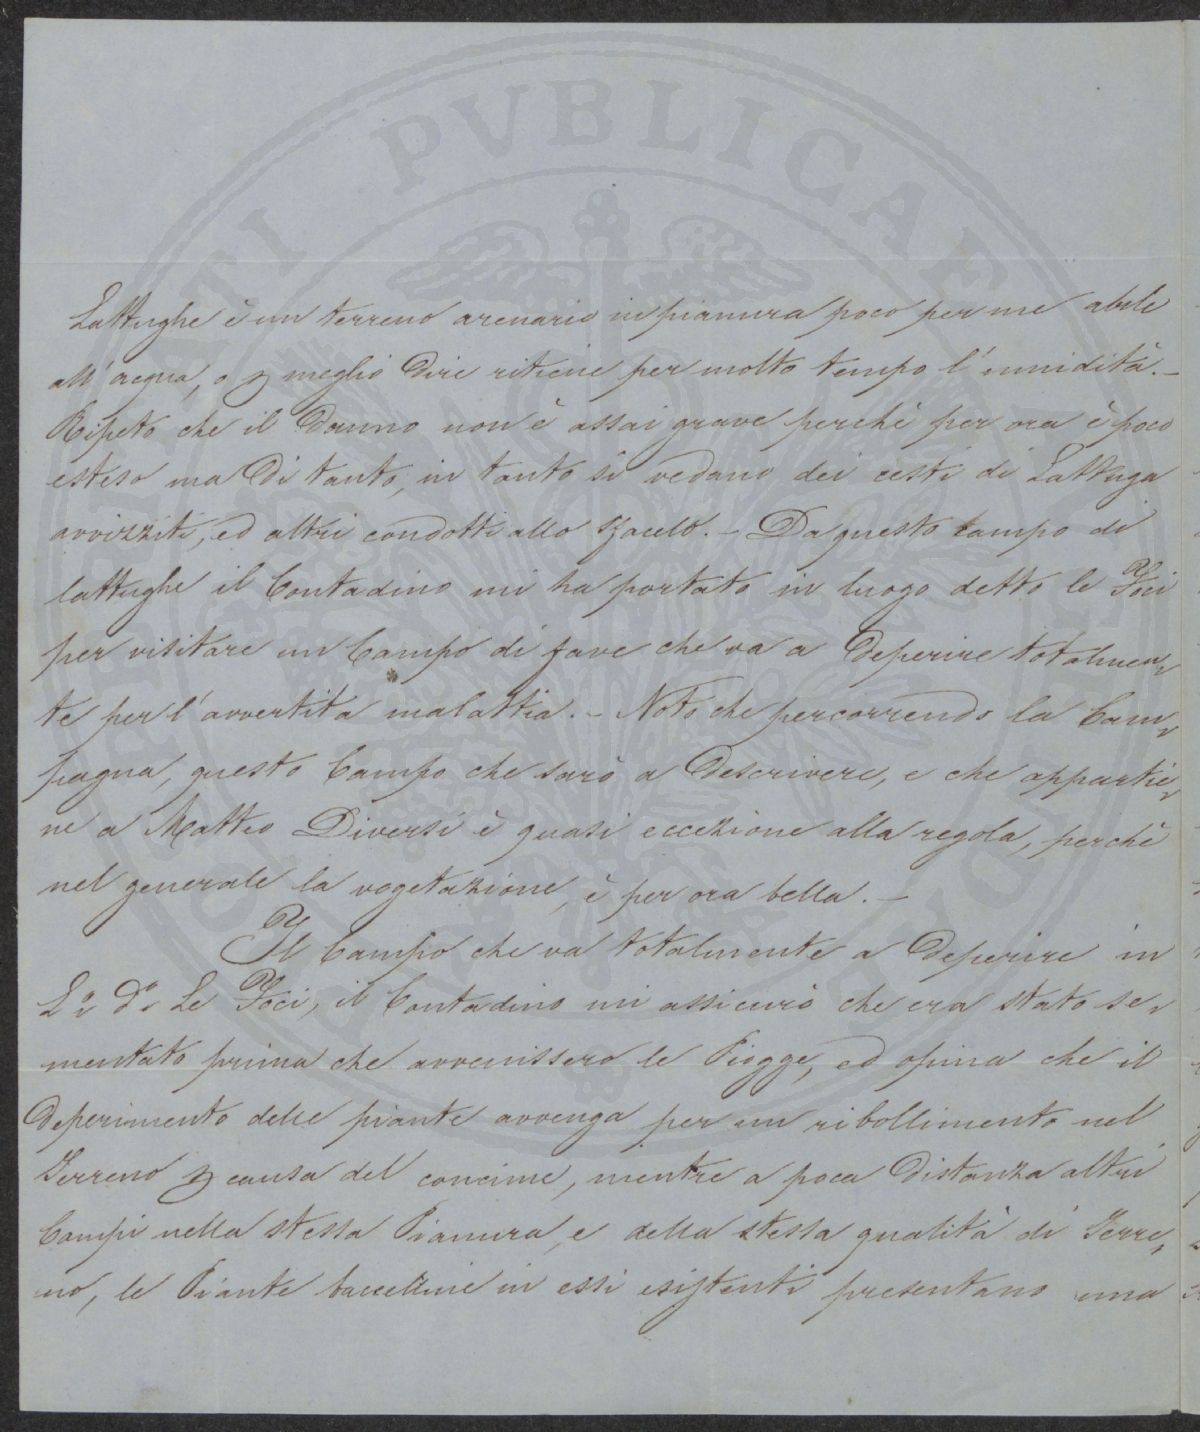 PVBLICAE
Lattughe è un terreno arenario in pianura poco per me abile
all'acqua, o p meglio dire ritiene per molto tempo l'umidità. –
Ripeto che il danno non è assai grave perchè per ora è poco
esteso ma di tanto, in tanto si vedano dei cesti di Lattuga
avvizziti, ed altri condotti allo Sfacelo. – Da questo campo di
lattughe il Contadino mi ha portato in luogo detto le Foci
per visitare un Campo di fave che va a deperire totalmen-
te per l'avvertita malattia. – Noto che percorrendo la Cam-
pagna, questo Campo che sarò a descrivere, e che apparti=
ne a Matteo Diversi è quasi eccezione alla regola, perchè
nel generale la vegetazione, è per ora bella. –
Il Campo che va totalmente a deperire in
L.o d.o Le Foci, il Contadino mi assicurò che era stato se-
mentato prima che avvenissero le Piogge, ed opina che il
deperimento delle piante avvenga per un ribollimento nel
Terreno p causa del concime, mentre a poca distanza altri
Campi nella stessa Pianura, e della stessa qualità di Terre-
no, le Piante baccelline in essi esistenti presentano una